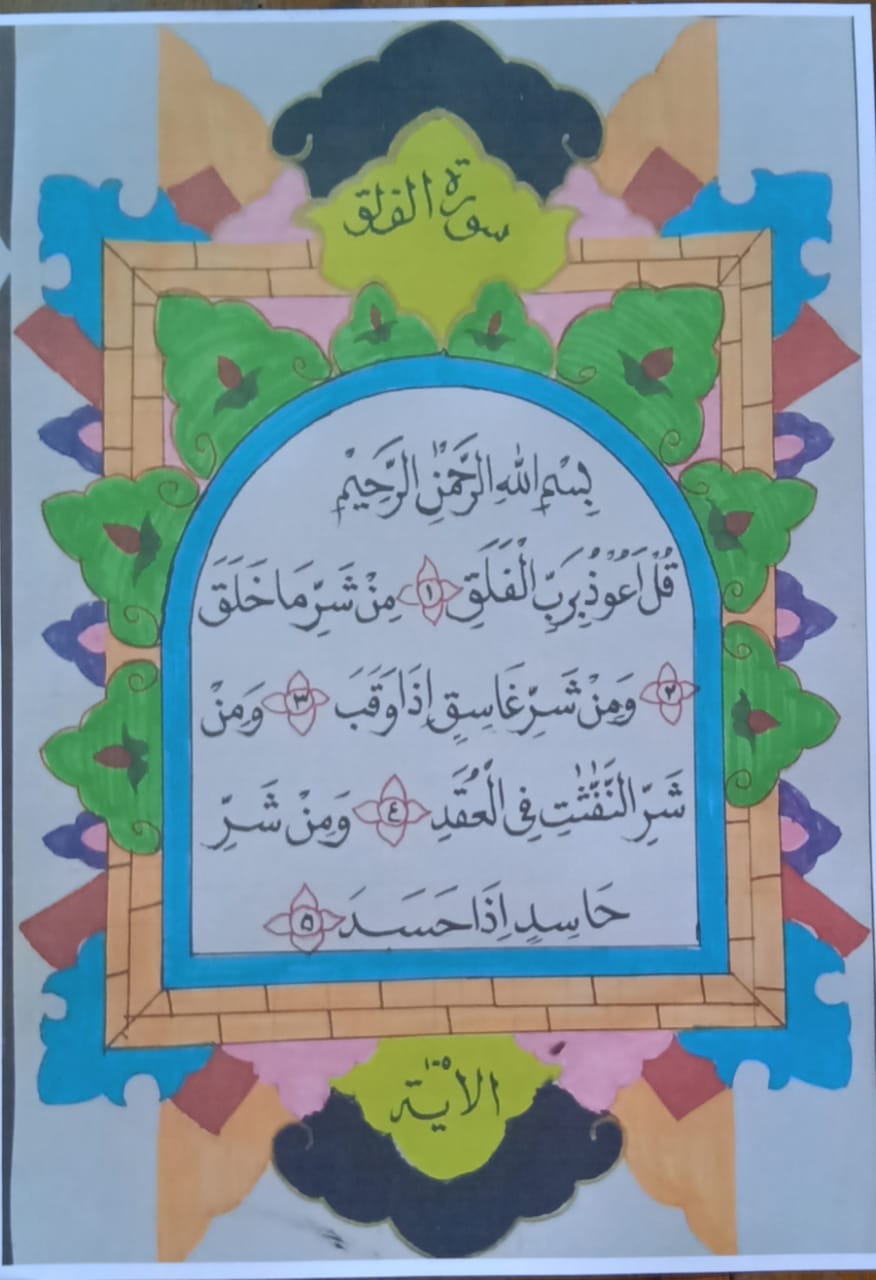 سورة الفلق
بِسْمِ اللهِ الرَّحْمٰنِ الرَّحِيْمِ
قُلْ اَعُوْذُ بِرَبِّ الْفَلَقِ ١ مِنْ شَرِّ مَا خَلَقَ
٢ وَمِنْ شَرِّ غَاسِقٍ اِذَا وَقَبَ ٣ وَمِنْ
شَرِّ النَّفّٰثٰتِ فِى الْعُقَدِ ٤ وَمِنْ شَرِّ
حَاسِدٍ اِذَا حَسَدَ ٥
١-٥
الاية